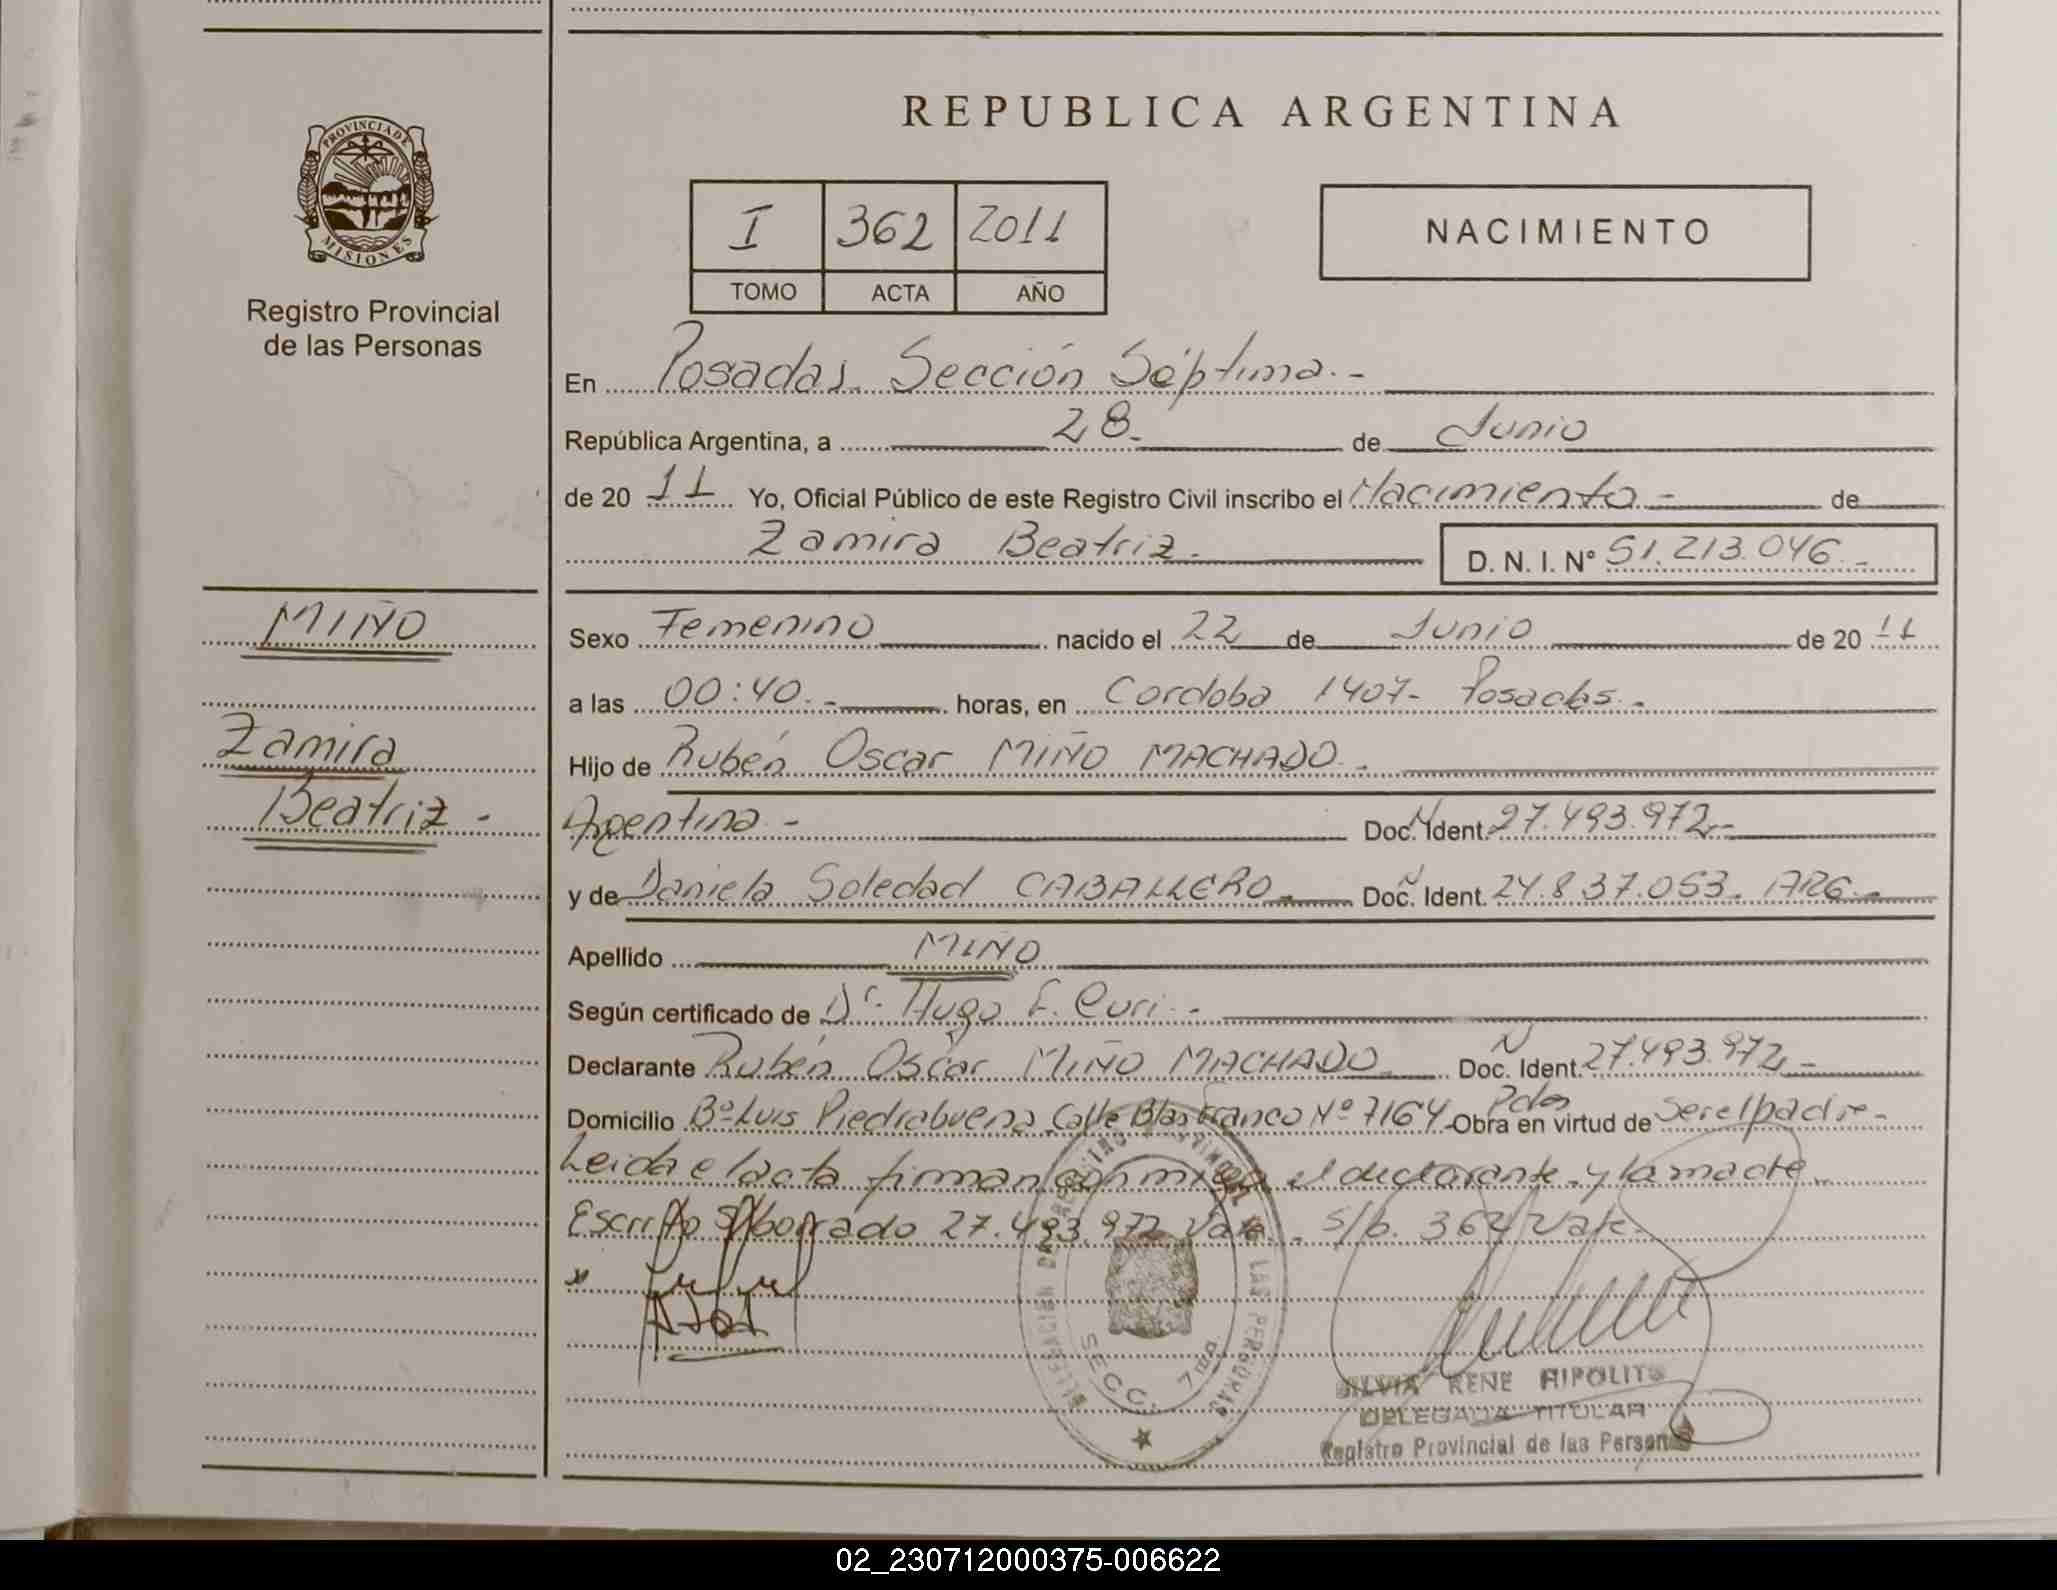 REPUBLICA ARGENTINA
PROVINCIA DE
MISIONES
Registro Provincial
de las Personas
I 362 2011
TOMO ACTA AÑO
NACIMIENTO
En Posadas. Sección Séptima.-
República Argentina, a 28 de Junio
de 20 11 Yo, Oficial Público de este Registro Civil inscribo el Nacimiento - de
Zamira Beatriz. D. N. I. Nº 51.213.046.-
MIÑO
Zamira
Beatriz -
Sexo Femenino nacido el 22 de Junio de 20 11
a las 00:40.- horas, en Cordoba 1407- Posadas.-
Hijo de Rubén Oscar MIÑO MACHADO.-
Argentina - Doc. N Ident. 27.493.972.-
y de Daniela Soledad CABALLERO.- Doc. N Ident. 24.837.053. ARG.-
Apellido MIÑO
Según certificado de Dr. Hugo F. Curi.-
Declarante Rubén Oscar MIÑO MACHADO. Doc. N Ident. 27.493.972.-
Domicilio Bº Luis Piedrabuena Calle Blas Franco Nº 7164 Pdas Obra en virtud de ser el padre-
Leida el acta firman conmigo el declarante y la madre.
Escrito S/borrado 27.493.972 Vale.- S/b. 362 Vale.
x
DELEGACION
LAS PERSONAS
SECC. 7ma
SILVIA RENE HIPOLITO
DELEGADA TITULAR
Registro Provincial de las Personas
02_230712000375-006622